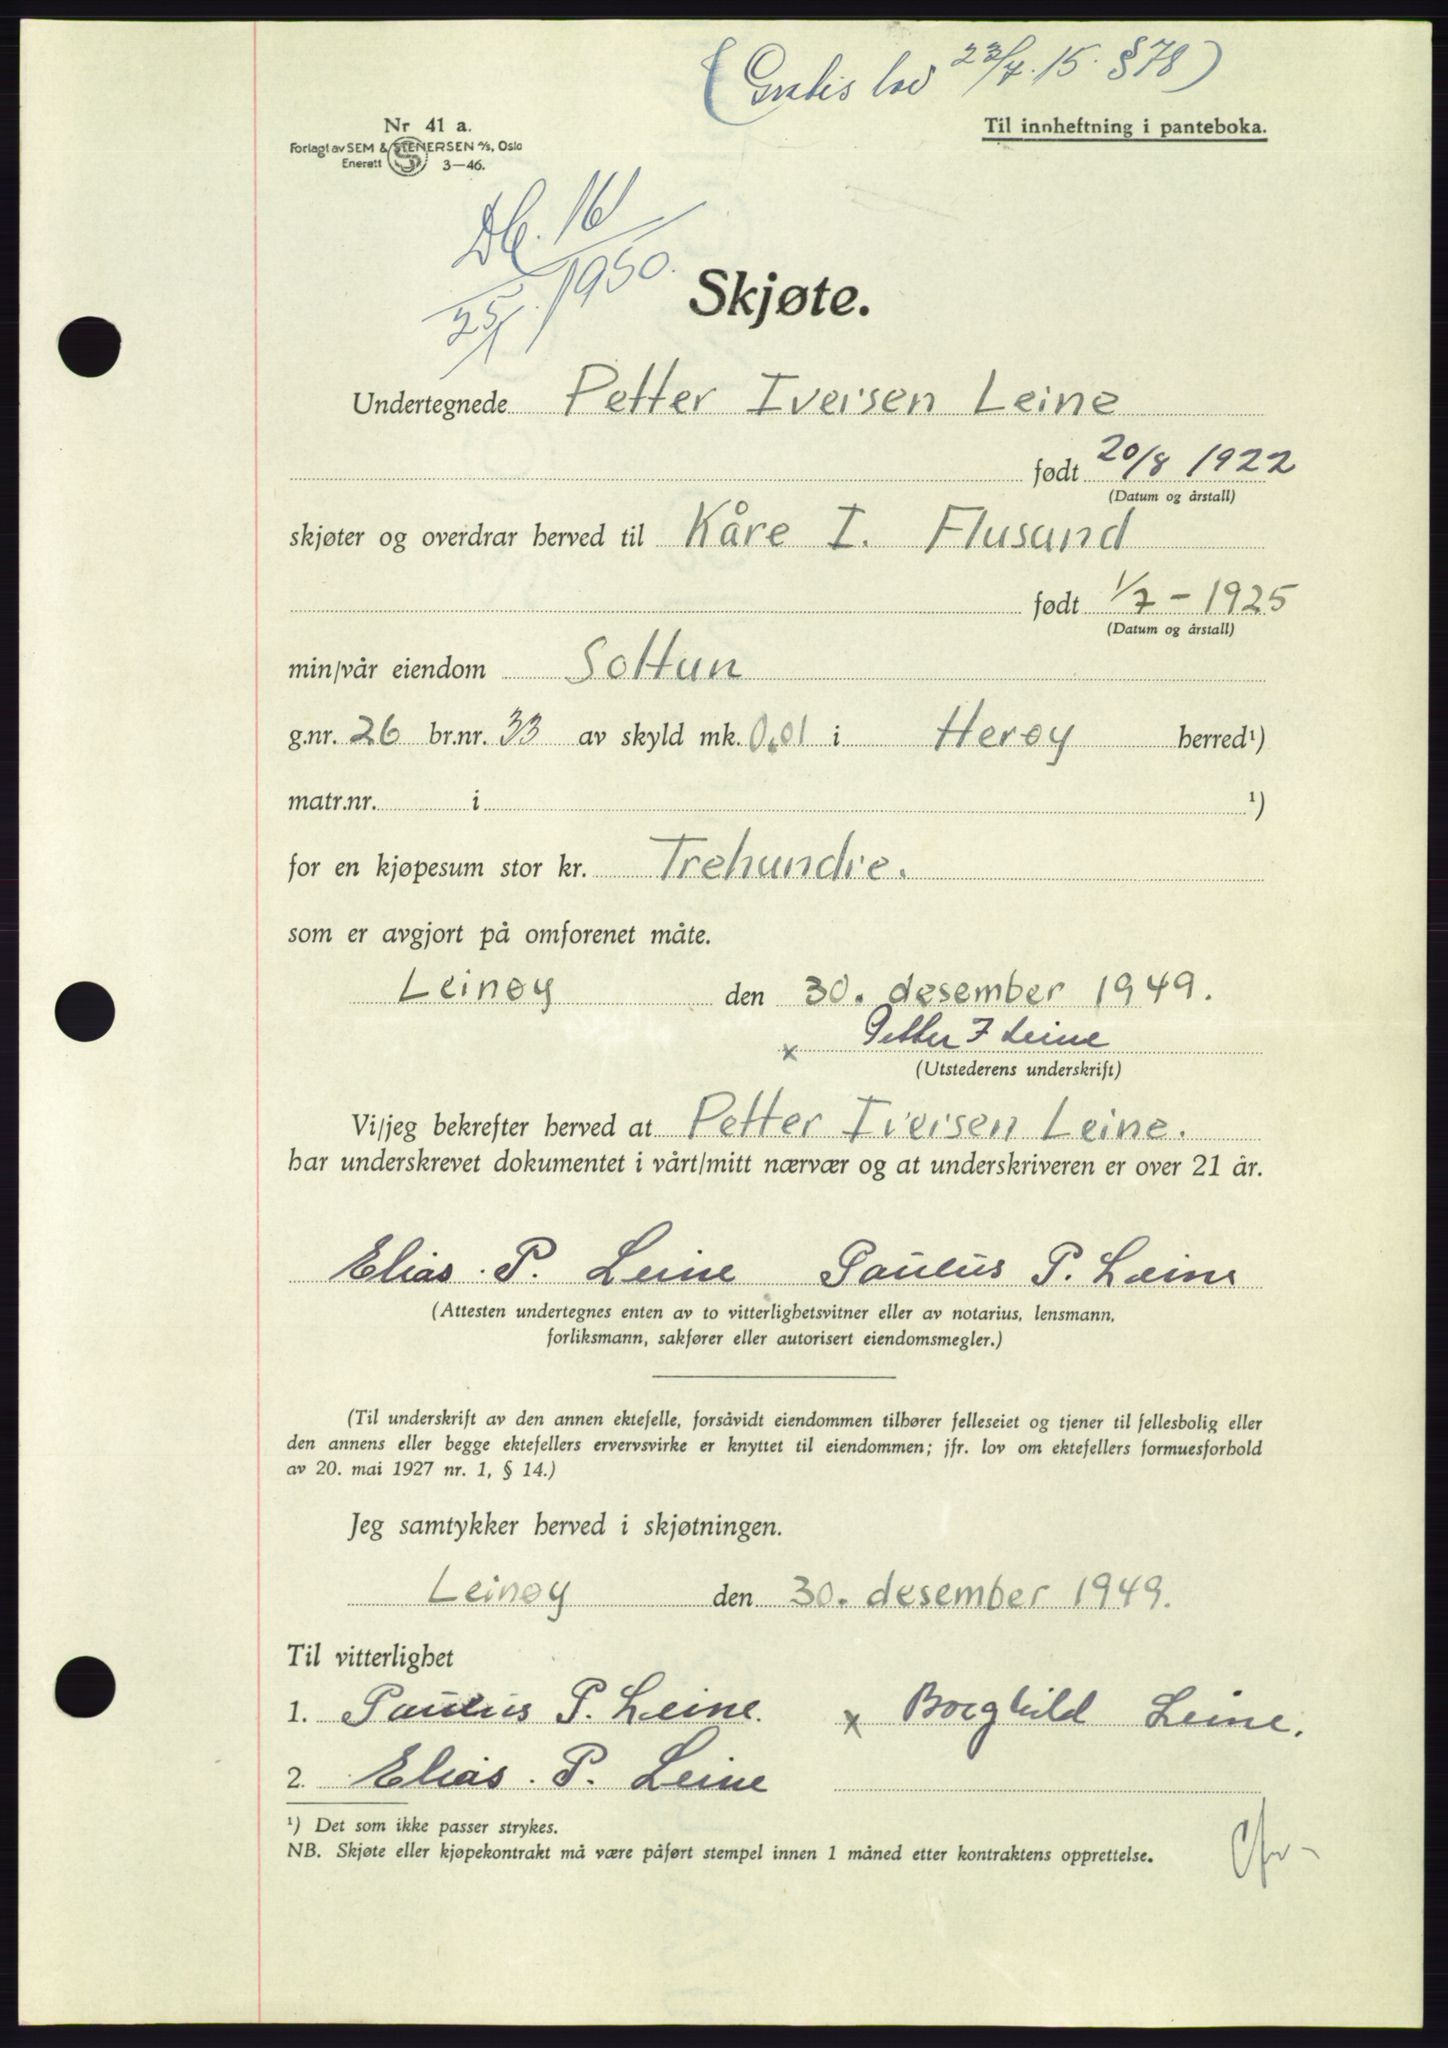 (Gratis lov 23/7. 15. § 78)
Nr 41 a.
Forlagt av SEM & STENERSEN A/S, Oslo
Enerett S 3—46.
Til innheftning i panteboka.
Db. 16/1950.
25/1.
Skjøte.
Undertegnede Petter Iversen Leine
født 20/8 1922
(Datum og årstall)
skjøter og overdrar herved til Kåre I. Flusund
født 1/7 – 1925
(Datum og årstall)
min/vår eiendom Soltun
g.nr. 26 br.nr. 33 av skyld mk. 0,01 i Herøy herred¹)
matr.nr. i ¹)
for en kjøpesum stor kr. Trehundre.
som er avgjort på omforenet måte.
Leinøy den 30. desember 1949.
x Petter I Leine
(Utstederens underskrift)
Vi/jeg bekrefter herved at Petter Iversen Leine.
har underskrevet dokumentet i vårt/mitt nærvær og at underskriveren er over 21 år.
Elias. P. Leine Paulus P. Leine
(Attesten undertegnes enten av to vitterlighetsvitner eller av notarius, lensmann,
forliksmann, sakfører eller autorisert eiendomsmegler.)
(Til underskrift av den annen ektefelle, forsåvidt eiendommen tilhører felleseiet og tjener til fellesbolig eller
den annens eller begge ektefellers ervervsvirke er knyttet til eiendommen; jfr. lov om ektefellers formuesforhold
av 20. mai 1927 nr. 1, § 14.)
Jeg samtykker herved i skjøtningen.
Leinøy den 30. desember 1949.
Til vitterlighet
1. Paulus P. Leine. x Borghild Leine.
2. Elias. P. Leine
¹) Det som ikke passer strykes.
NB. Skjøte eller kjøpekontrakt må være påført stempel innen 1 måned etter kontraktens opprettelse.